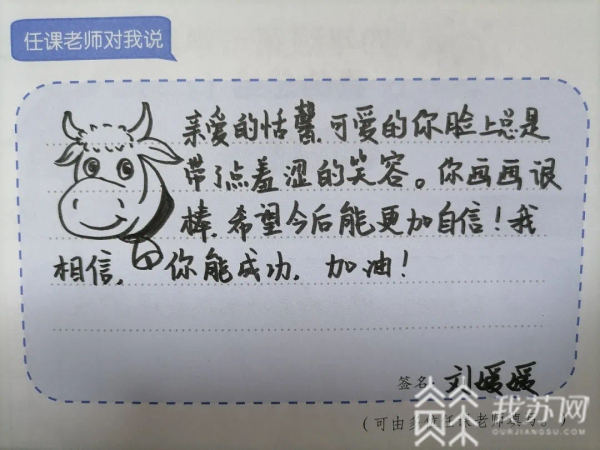 任课老师对我说
亲爱的恬馨,可爱的你脸上总是
带了点羞涩的笑容。你画画很
棒,希望今后能更加自信!我
相信,你能成功,加油!
签名:刘媛媛
(可由多位任课老师填写。)
我苏网
OURJIANGSU.COM